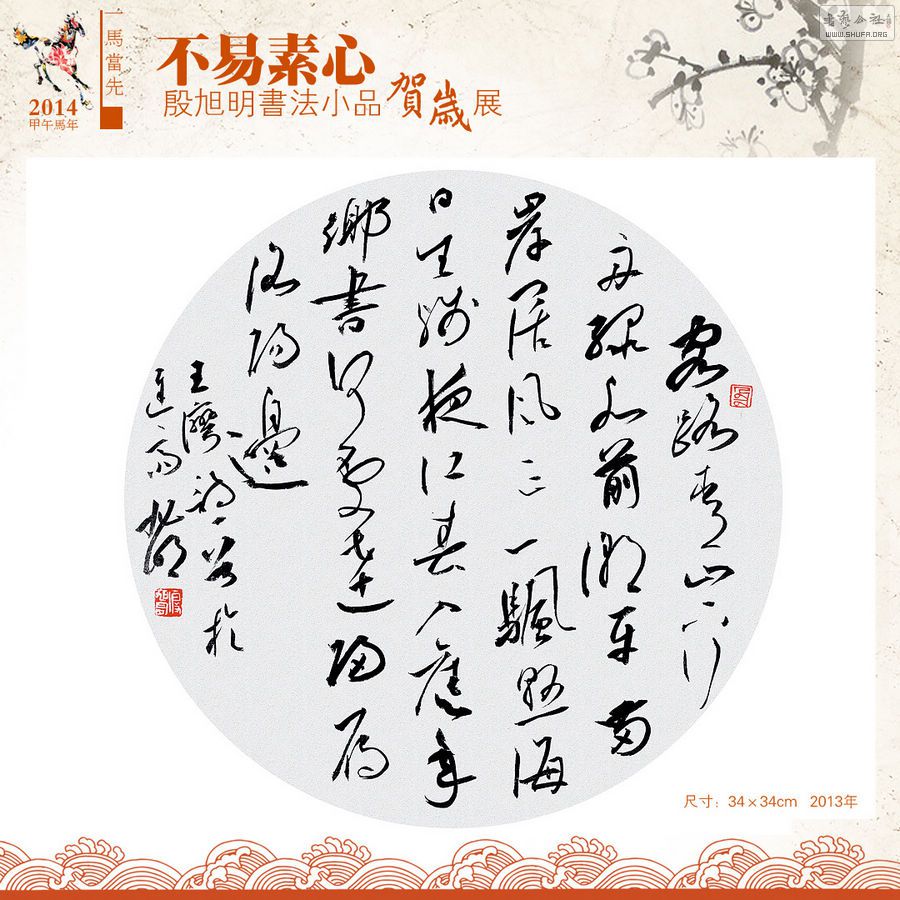 一馬當先
2014
甲午馬年
不易素心
殷旭明書法小品賀歲展
書藝公社
WWW.SHUFA.ORG
客路青山下行
舟綠水前潮平兩
岸阔风正一颿懸海
日生殘夜江春入舊年
鄉書何處達歸雁
洛陽邊
王灣詩一首於
旭明
尺寸：34×34cm 2013年